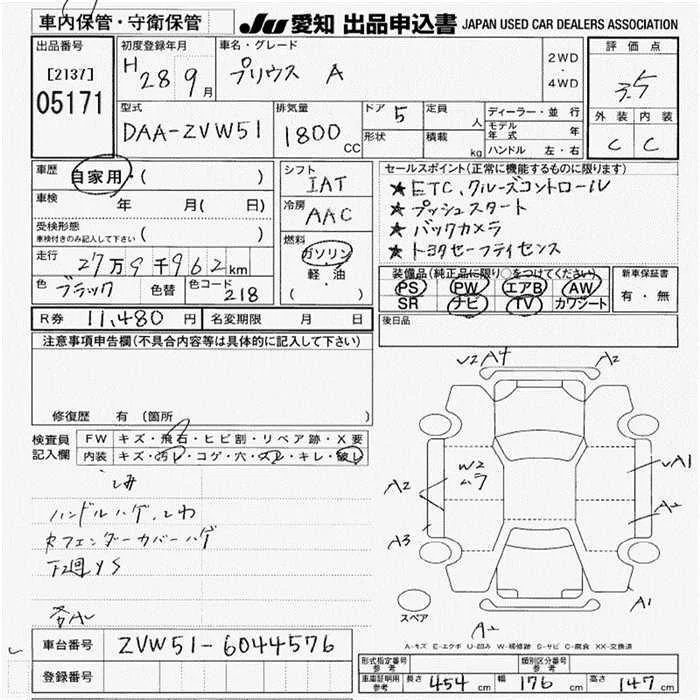 車内保管・守衛保管
JU 愛知 出品申込書 JAPAN USED CAR DEALERS ASSOCIATION
出品番号
[2137]
05171
初度登録年月
H 28 9月
車名・グレード
プリウス A
2WD
・
4WD
評価点
3.5
外装 内装
C C
型式
DAA-ZVW51
排気量
1800 CC
ドア 5
形状
定員 人
積載 kg
ディーラー・並行
モデル年式 年
ハンドル 左・右
車歴 自家用・( )
車検 年 月( 日)
受検形態
車検付きのみ記入して下さい ( )
走行 27万9千962km
色 ブラック 色替 色コード 218
シフト
IAT
冷房
AAC
燃料
ガソリン
軽・油
( )
セールスポイント(正常に機能するものに限ります)
★ETC、クルーズコントロール
★プッシュスタート
★バックカメラ
★トヨタセーフティセンス
装備品(純正品に限り○をつけてください)
PS PW エアB AW
SR ナビ TV カワシート
新車保証書
有・無
後日品
R券 11,480円 名変期限 月 日
注意事項申告欄(不具合内容等は具体的に記入して下さい)
修復歴 有(箇所 )
検査員
記入欄
FW キズ・飛石・ヒビ割・リペア跡・X要
内装 キズ・汚レ・コゲ・穴・スレ・キレ・破レ
シミ
ハンドルハゲ、シワ
Rフェンダーカバーハゲ
下廻りS
V2A4 A2
W2
ムラ
A2
A3
A1
A2
A1
A2
スペア
A-キズ E-エクボ U-凹み W-補修跡 S-サビ C-腐食 XX-交換済
車台番号 ZVW51-6044576
登録番号
形式指定番号
参考
類別区分番号
参考
車庫証明用
参考
長さ 454cm 幅 176cm 高さ 147cm